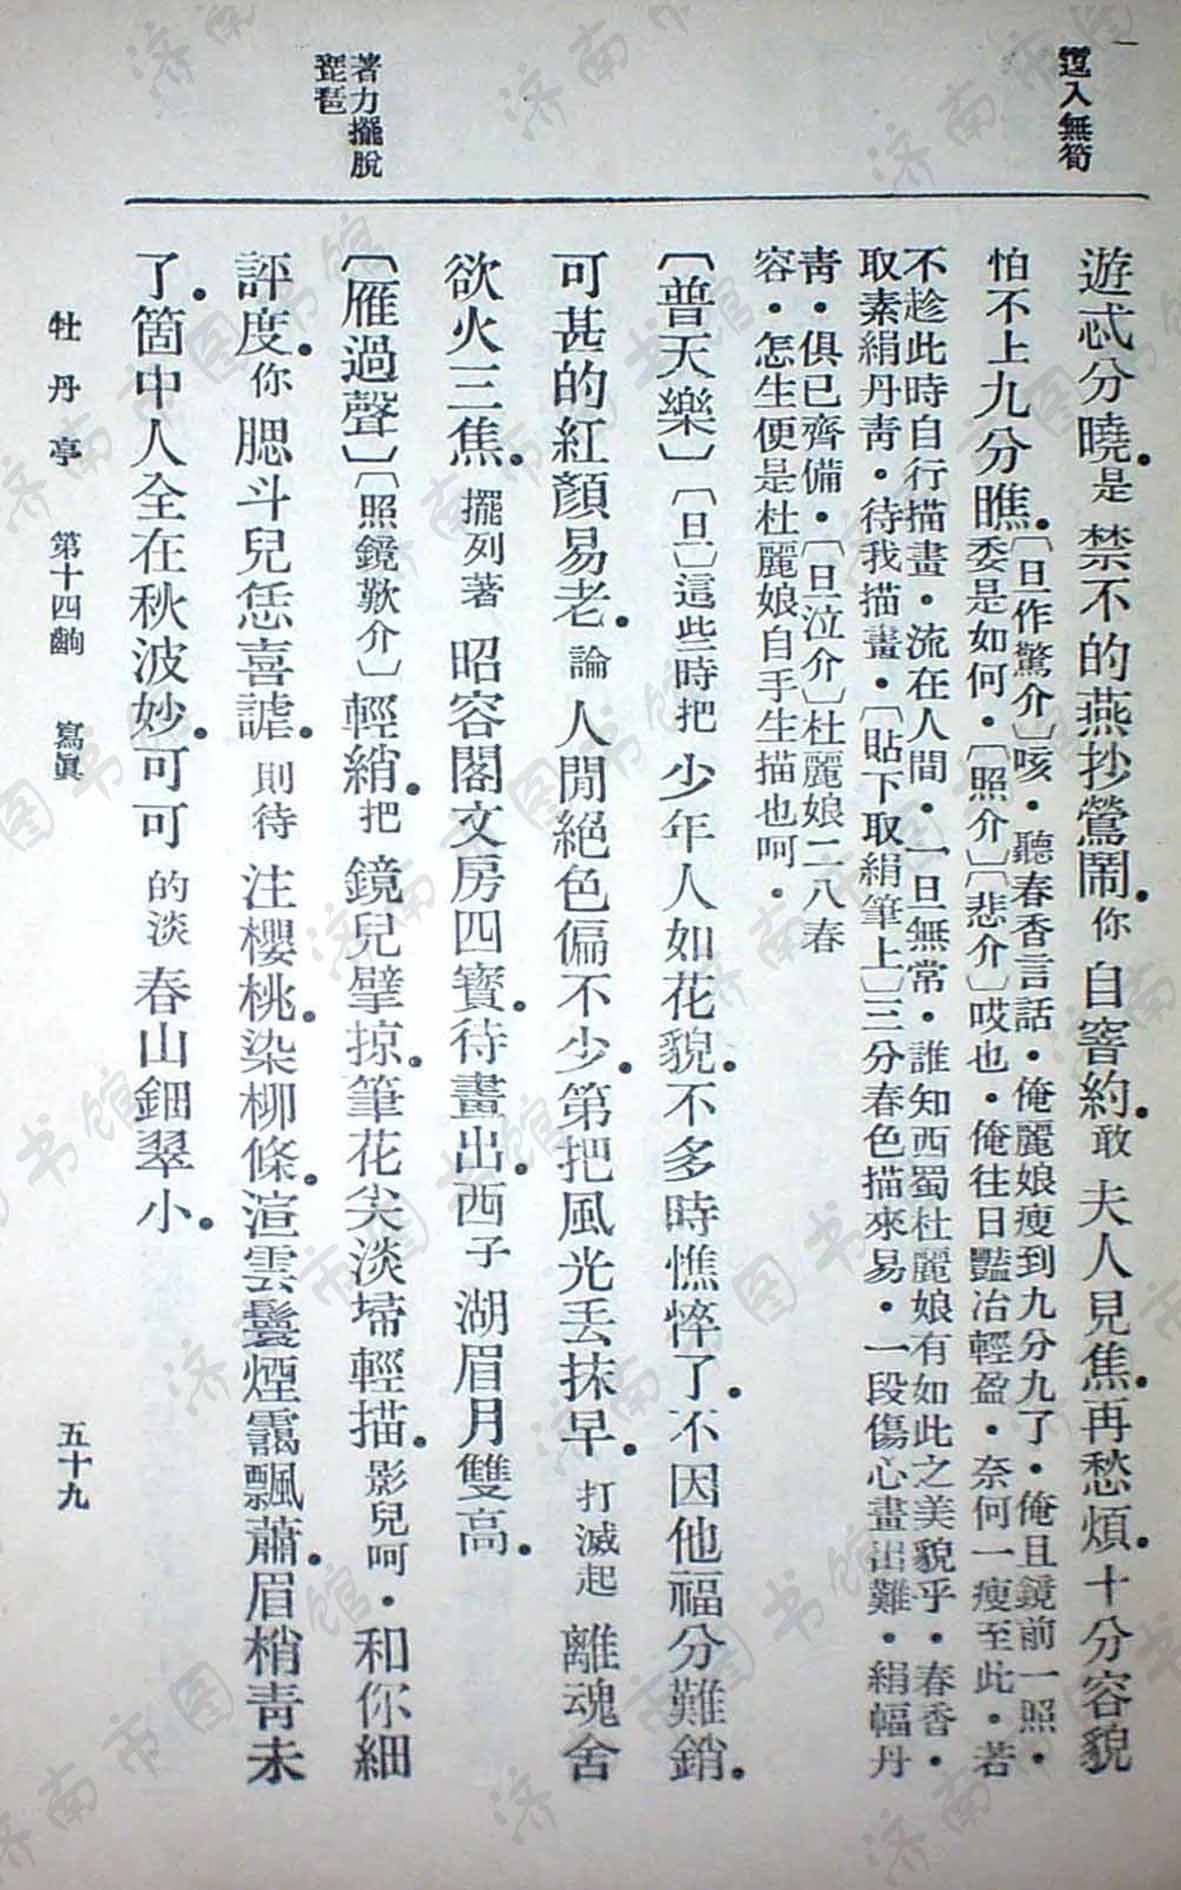 逗入無筍
著力擺脫
琵琶
遊忒分曉。是禁不的燕抄鶯鬧。你自窨約。敢夫人見焦。再愁煩。十分容貌
怕不上九分瞧。〔旦作驚介〕咳・聽春香言話・俺麗娘瘦到九分九了・俺且鏡前一照・
委是如何・〔照介〕〔悲介〕哎也・俺往日豔冶輕盈・奈何一瘦至此・若
不趁此時自行描畫・流在人間・一旦無常・誰知西蜀杜麗娘有如此之美貌乎・春香・
取素絹丹靑・待我描畫・〔貼下取絹筆上〕三分春色描來易・一段傷心畫出難・絹幅丹
靑・俱已齊備・〔旦泣介〕杜麗娘二八春
容・怎生便是杜麗娘自手生描也呵・
〔普天樂〕〔旦〕這些時把少年人如花貌。不多時憔悴了。不因他福分難銷。
可甚的紅顏易老。論人閒絕色偏不少。第把風光丟抹早。打滅起離魂舍
欲火三焦。擺列著昭容閣文房四寳。待畫出。西子湖眉月雙高。
〔雁過聲〕〔照鏡歎介〕輕綃。把鏡兒擘掠。筆花尖淡埽輕描。影兒呵・和你細
評度。你腮斗兒恁喜謔。則待注櫻桃。染柳條。渲雲鬟煙靄飄蕭。眉梢靑未
了。箇中人全在秋波妙。可可的淡春山鈿翠小。
牡丹亭 第十四齣 寫眞 五十九